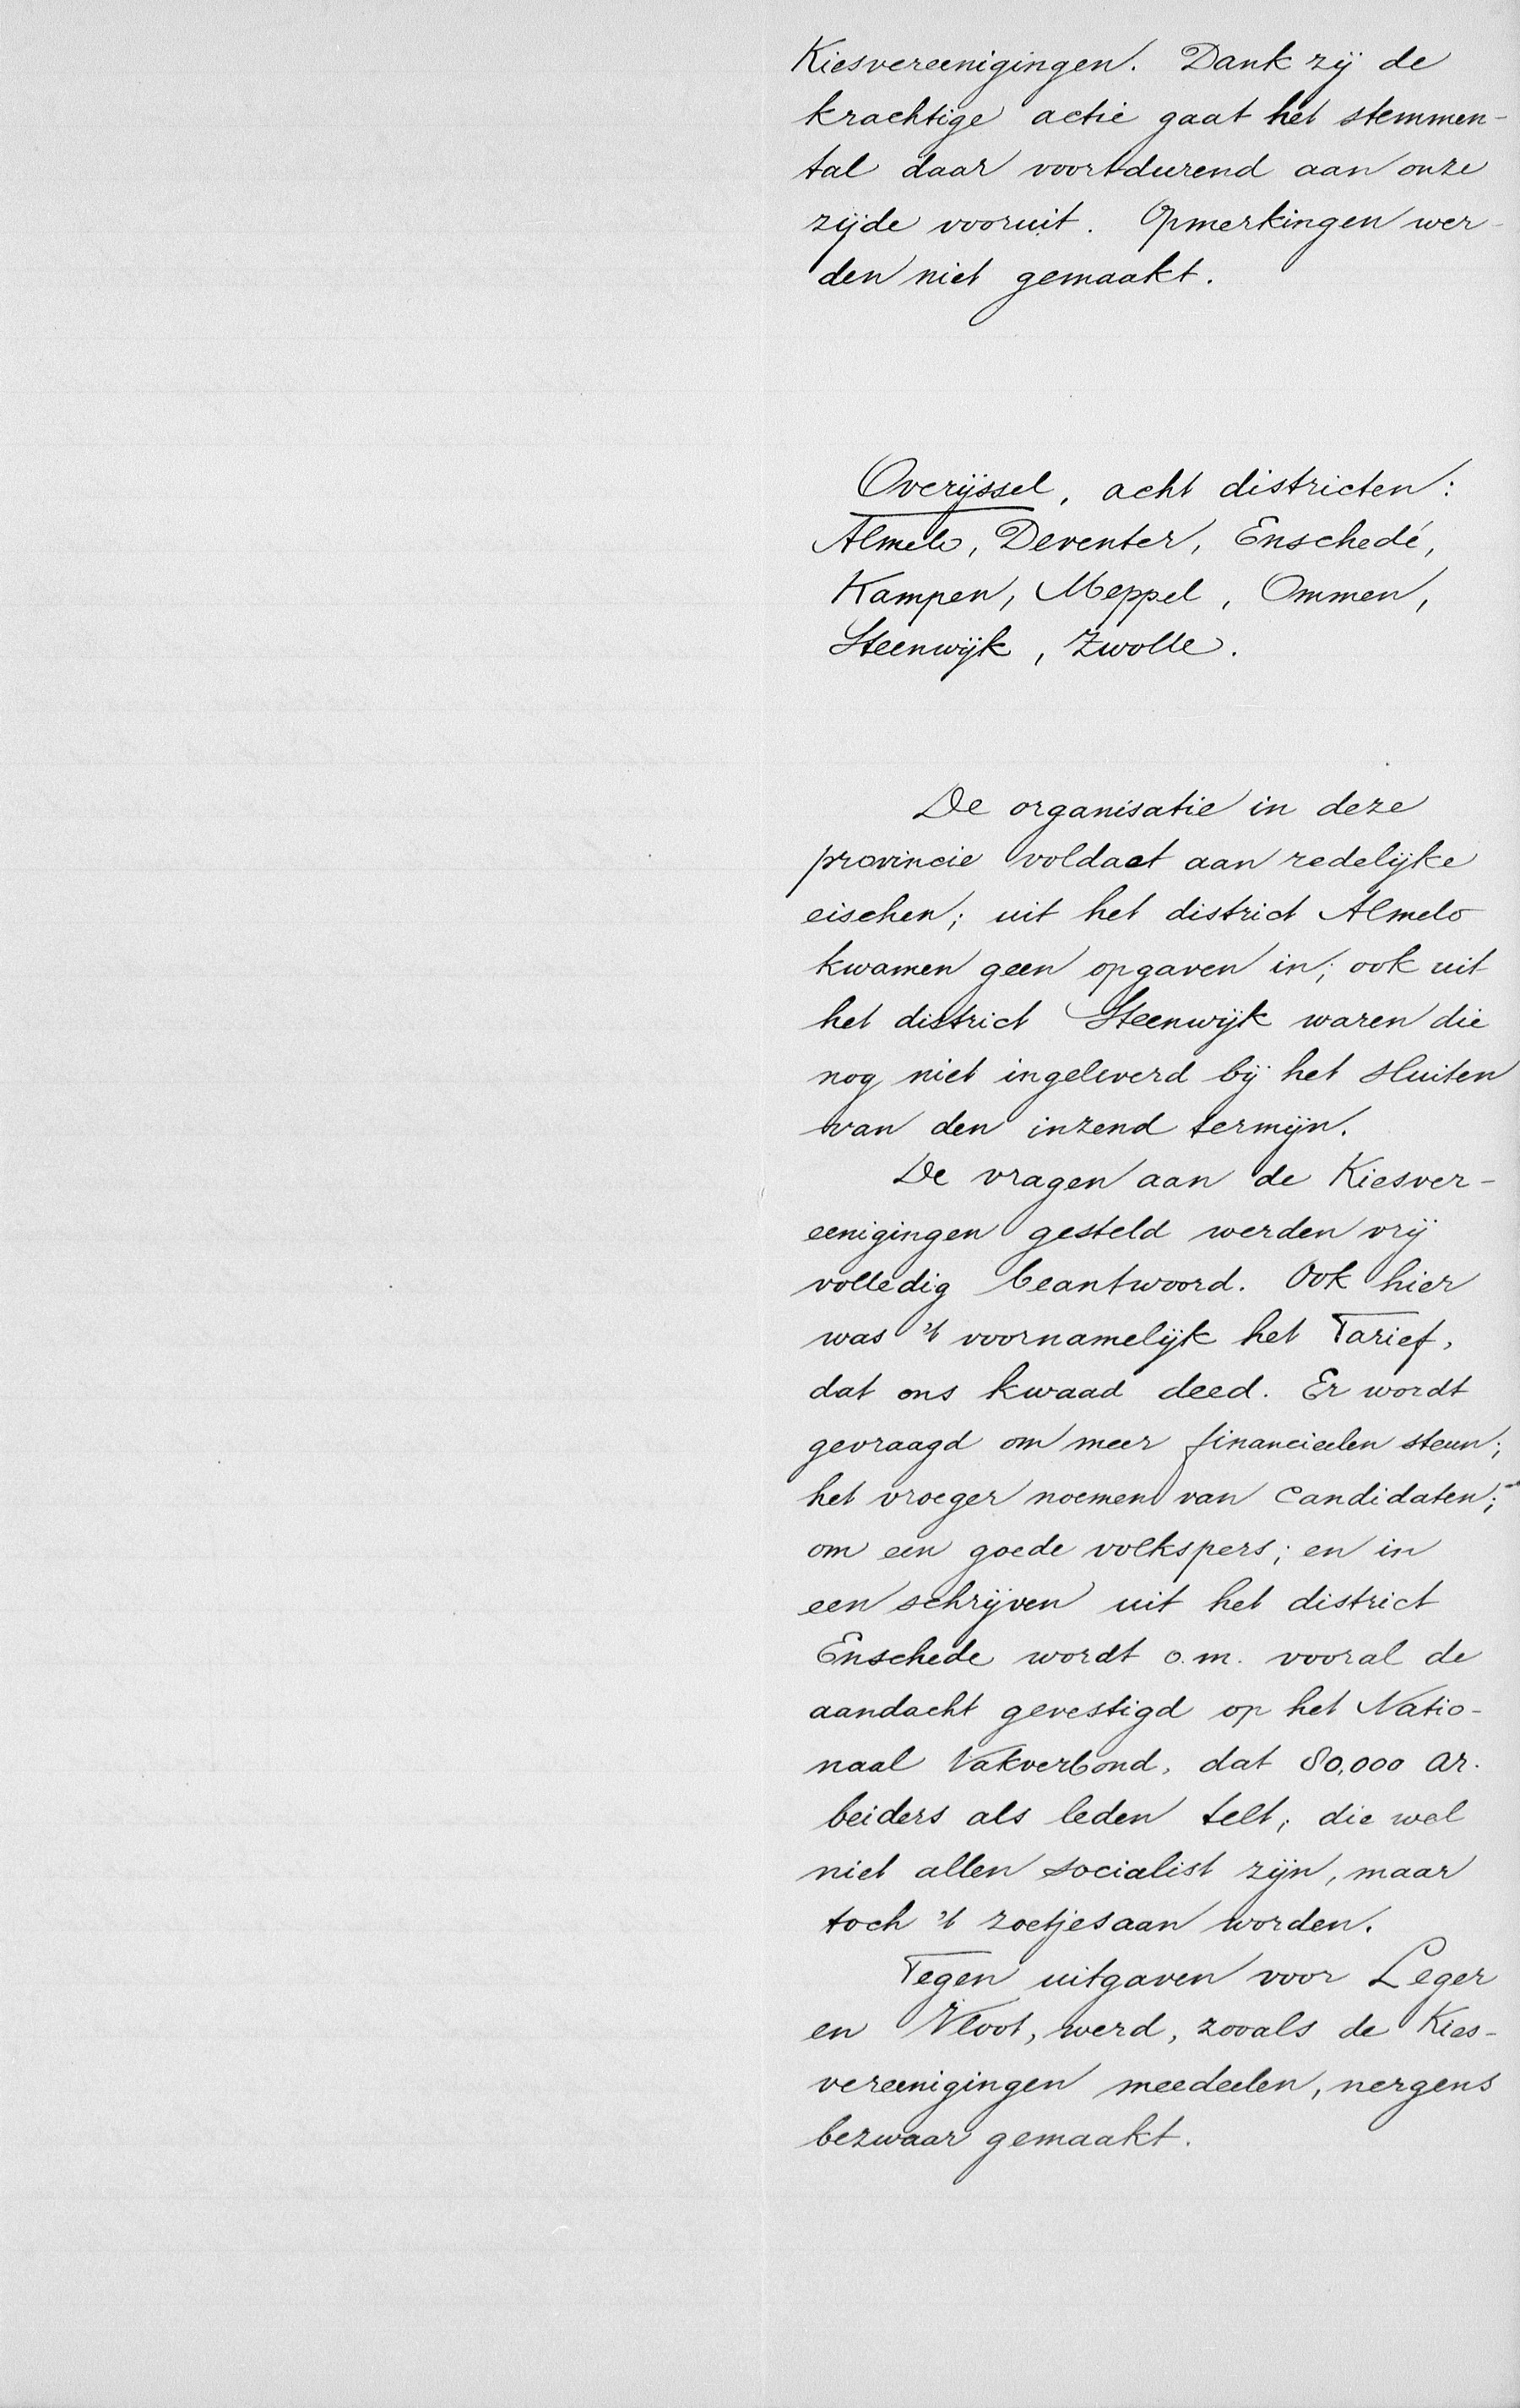 Kiesvereenigingen. Dank zij de
krachtige actie gaat het stemmen-
tal daar voortdurend aan onze
zijde vooruit. Opmerkingen wer-
den niet gemaakt.
Overijssel, acht districten:
Almelo, Deventer, Enschedé,
Kampen, Meppel, Ommen,
Steenwijk, Zwolle.
De organisatie in deze
provincie voldaet aan redelijke
eischen; uit het district Almelo
kwamen geen opgaven in; ook uit
het district Steenwijk waren die
nog niet ingeleverd bij het sluiten
van den inzend termijn.
De vragen aan de Kiesver-
eenigingen gesteld werden vrij
volledig beantwoord. Ook hier
was 't voornamelijk het Tarief,
dat ons kwaad deed. Er wordt
gevraagd om meer financieelen steun;
het vroeger noemen van Candidaten;
om een goede volkspers; en in
een schrijven uit het district
Enschede wordt o.m. vooral de
aandacht gevestigd op het Natio-
naal Vakverbond, dat 80,000 ar-
beiders als leden telt, die wel
niet allen socialist zijn, maar
toch 't zoetjesaan worden.
Tegen uitgaven voor Leger
en Vloot, werd, zooals de Kies-
vereenigingen meedeelen, nergens
bezwaar gemaakt.